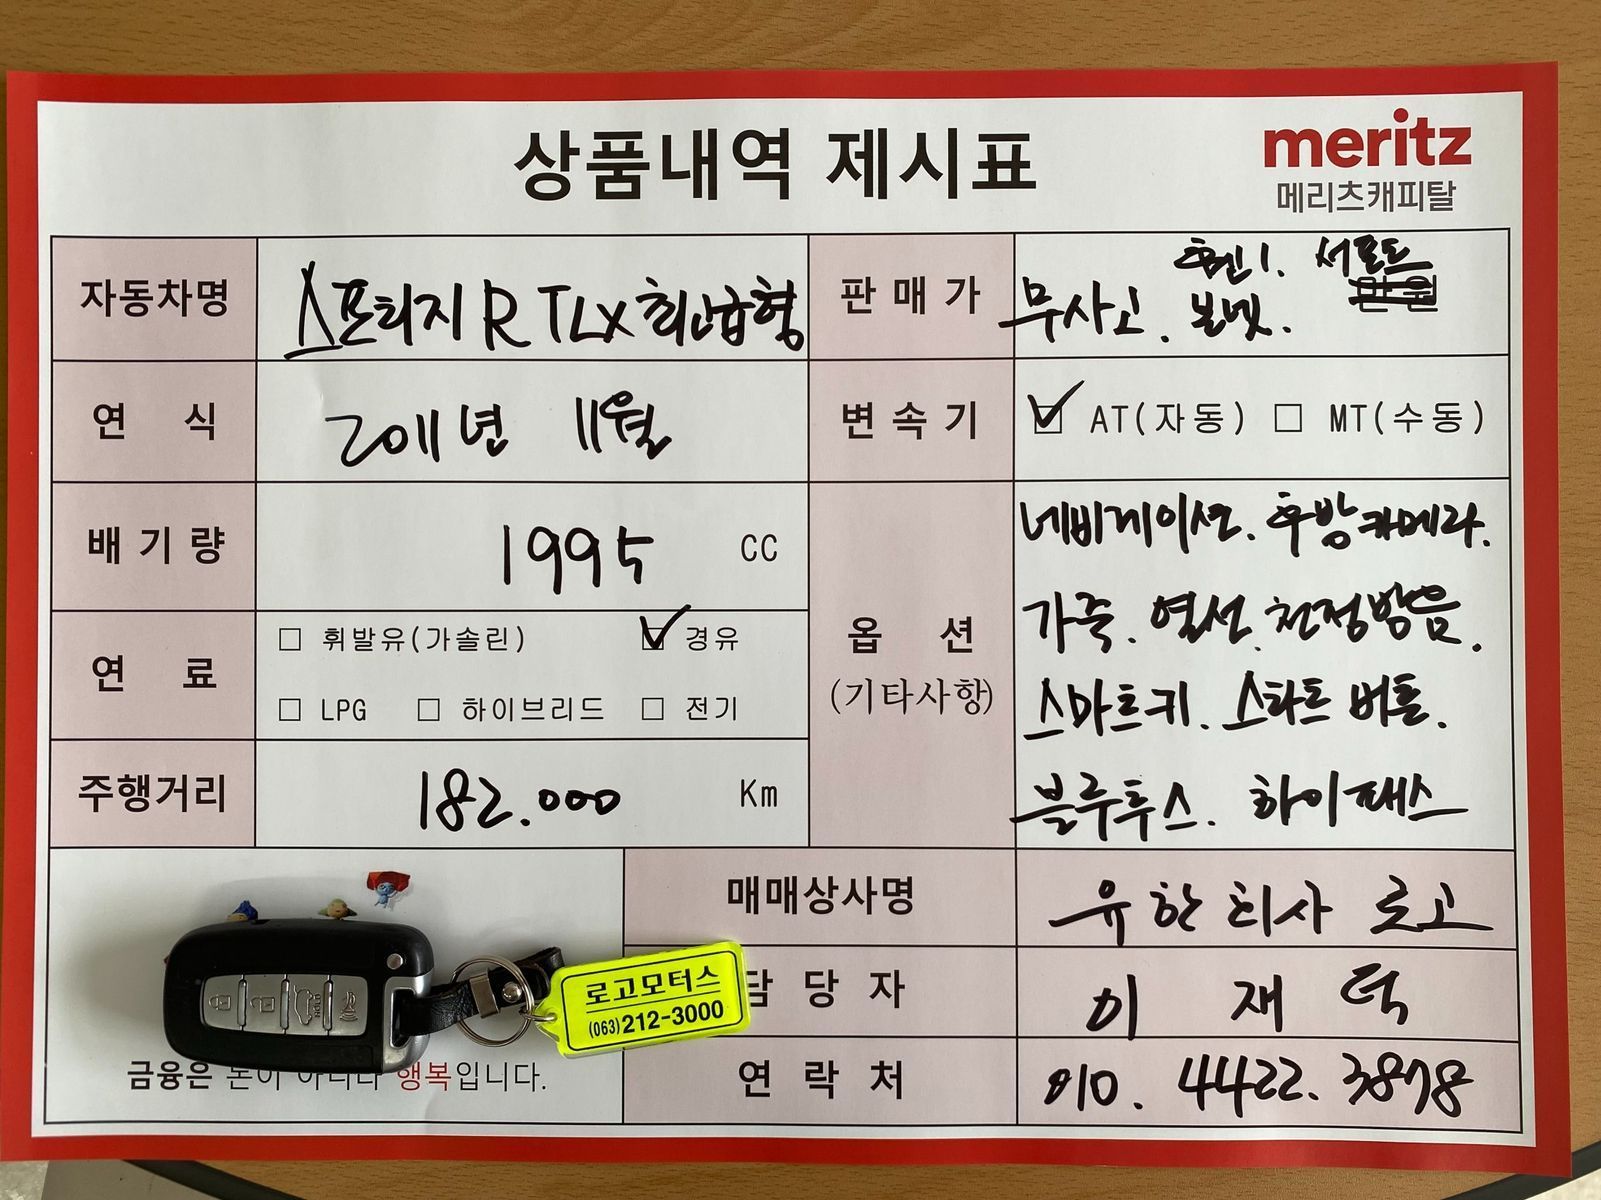 상품내역 제시표
meritz
메리츠캐피탈
자동차명 스포티지 R TLX 최고급형
판매가 무사고. 본넷. 휀1. 서포트 만원
연식 2011년 11월
변속기 AT(자동) MT(수동)
배기량 1995 CC
옵션 (기타사항)
네비게이션. 후방카메라.
가죽. 열선. 천정방음.
스마트키. 스타트 버튼.
블루투스. 하이패스
연료 휘발유(가솔린) 경유
LPG 하이브리드 전기
주행거리 182.000 Km
매매상사명 유한회사 로고
담당자 이재덕
연락처 010. 4422. 3878
로고모터스
(063)212-3000
금융은 돈이 아니라 행복입니다.